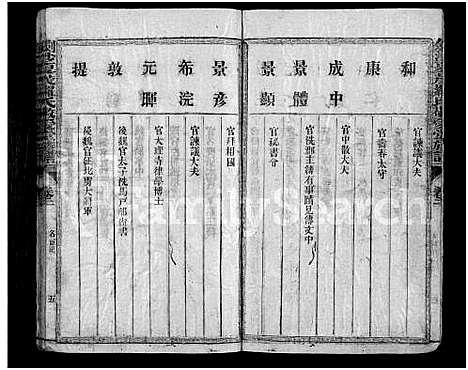 和
官諫議大夫
康
官壽春太守
成中
官中散大夫
景體
官洗郡主簿有事蹟見傳文中
景顯
官秘書令
景彥
官拜相國
布浣
官諫議大夫
元暉
官大理寺律學博士
敦
後魏官太子洗馬戶部尚書
提
後魏官征北虜大將軍
五
FamilySearch